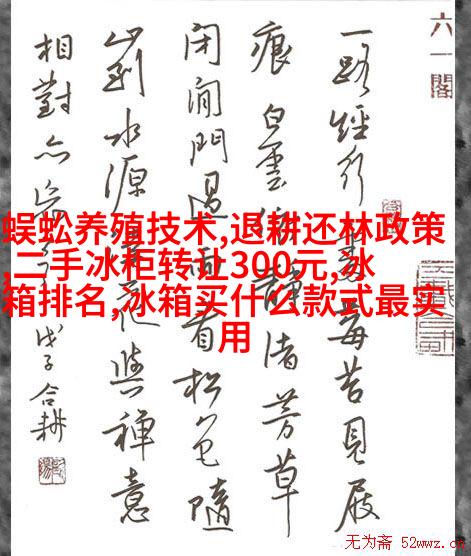 六一閣
一路經行莓苔見屐
痕白雲靜渚芳草
闭闲門過雨看松色隨
山到水源花與禅意
相對亦
戊子合耕
蜈蚣养殖技术,退耕还林政策
,二手冰柜转让300元,冰
箱排名,冰箱买什么款式最实
用
无为斋 52wwz.cn